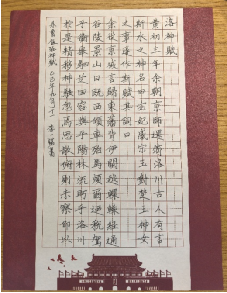 洛神賦
黃初三年余朝京師還濟洛川古人有言
斯水之神名曰宓妃感宋玉對楚王神女
之事遂作斯賦其詞曰
余從京域言歸東藩背伊闕越轘轅經通
谷陵景山日既西傾車殆馬煩爾迺稅駕
乎蘅皋秣駟乎芝田容與乎陽林流眄乎洛川
於是精移神駭忽焉思散俯則未察仰以